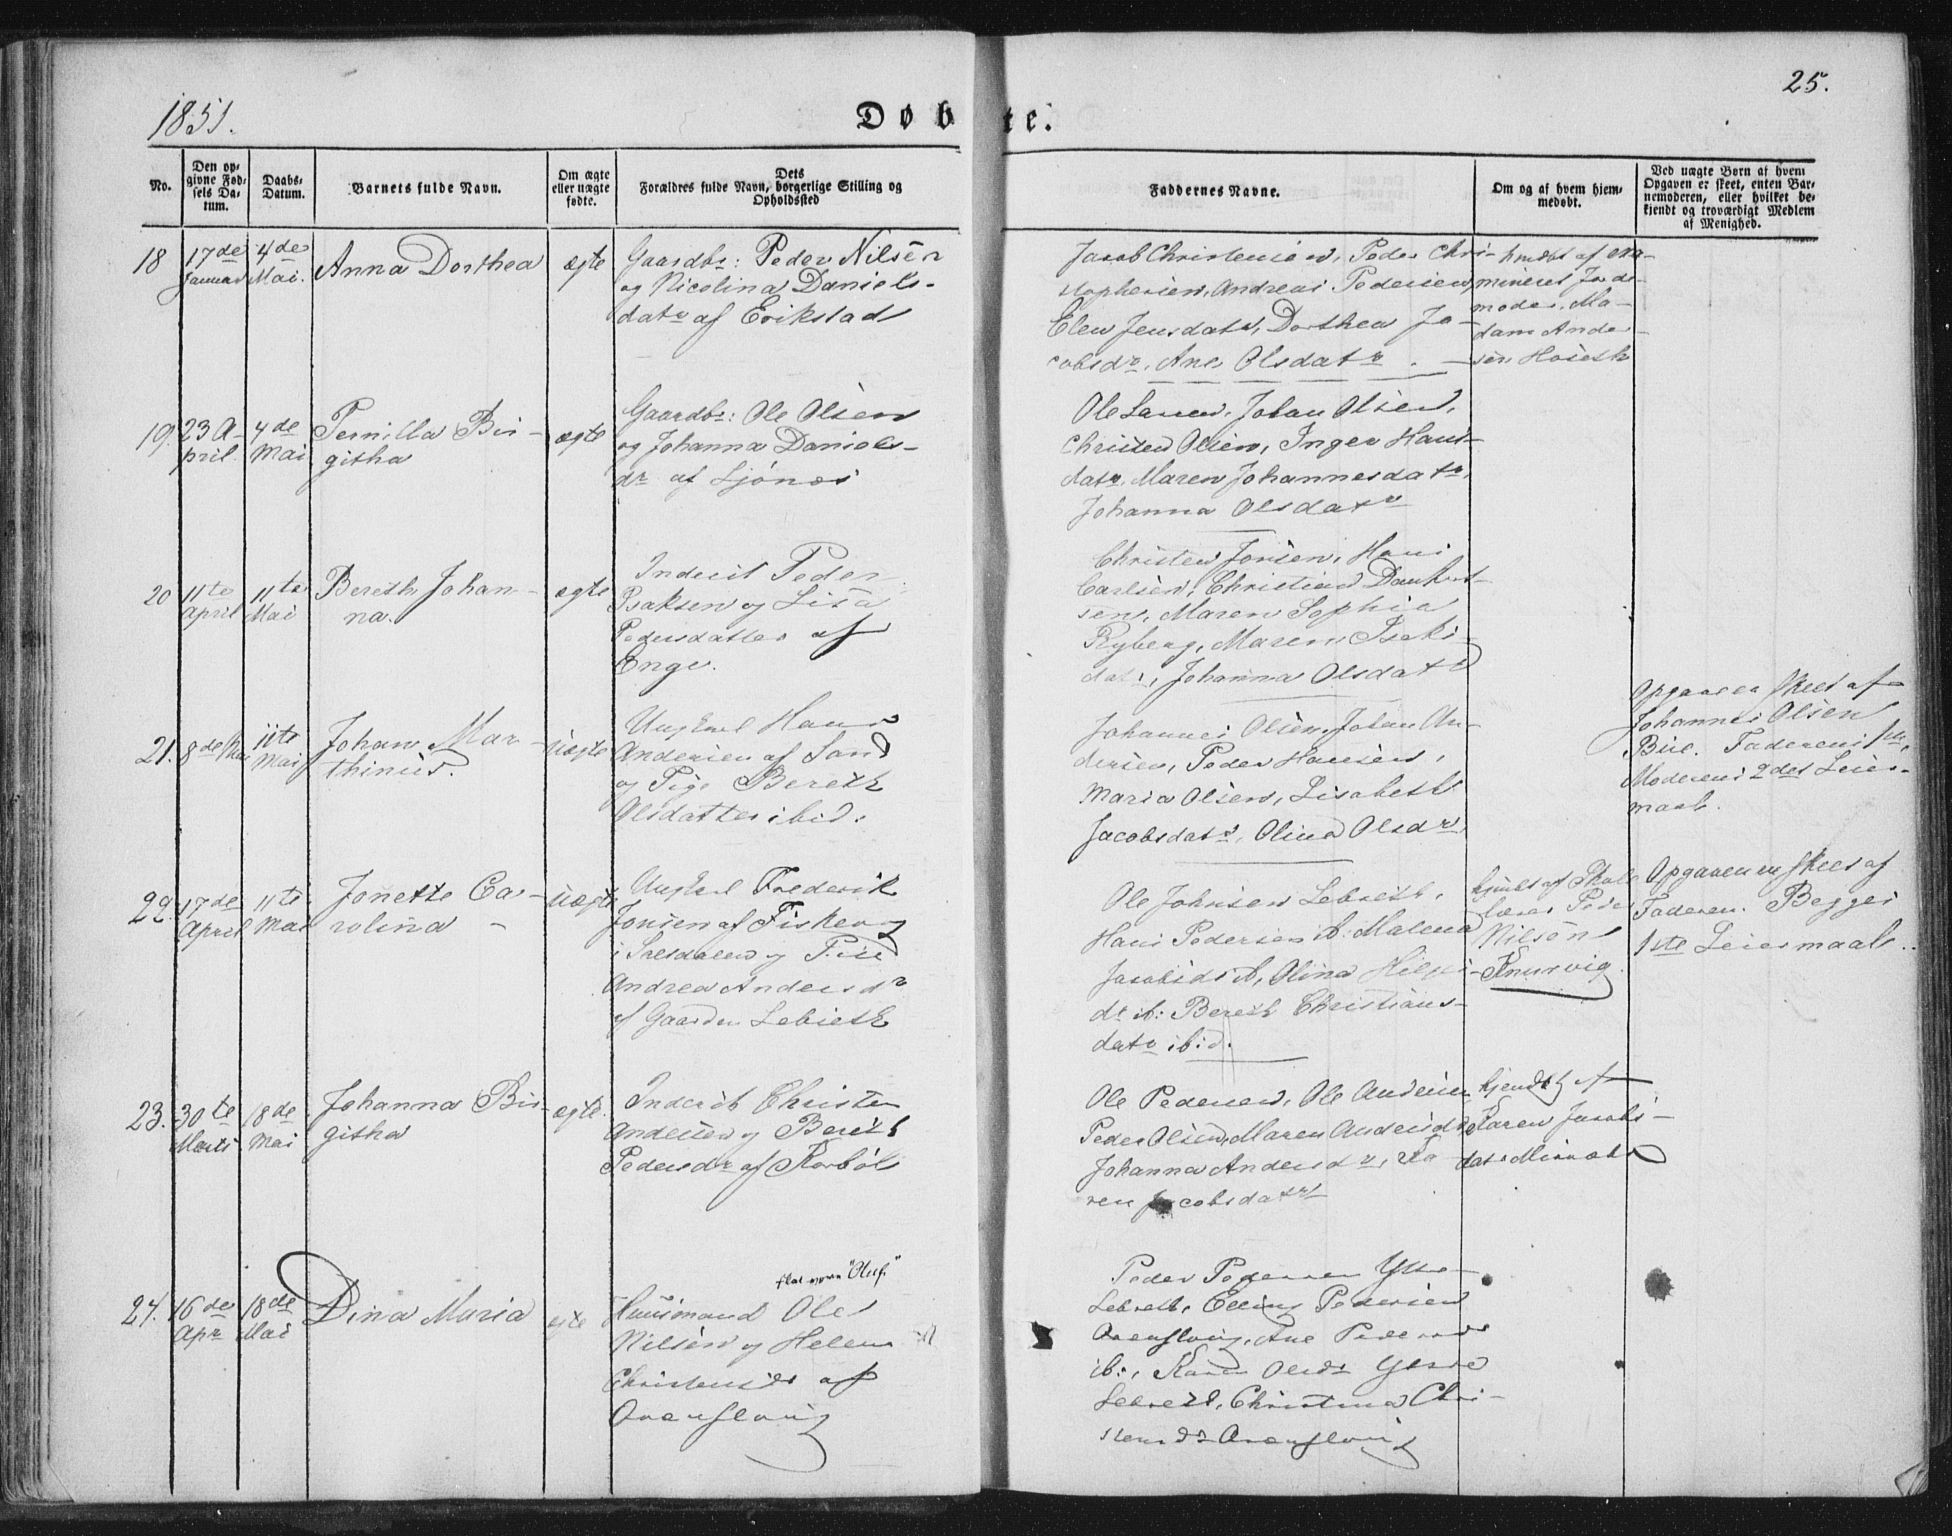 1851.
25.
Døbte.
No.
Den opgivne Fødsels Datum.
Daabs-Datum.
Barnets fulde Navn.
Om ægte eller uægte fødte.
Dets Forældres fulde Navn, borgerlige Stilling og Opholdssted
Faddernes Navne.
Om og af hvem hjemmedøbt.
Ved uægte Børn af hvem Opgaven er skeet, enten Barnemoderen, eller hvilket bekjendt og troværdigt Medlem af Menighed.
18
17de Januar
4de Mai.
Anna Dorthea
ægte
Gaardbr: Peder Nilsen
og Nicolina Daniels-
datr af Erikstad
Jacob Christensen, Peder Chri-
stophersen, Andreas Pedersen,
Elen Jensdatr, Dorthea Ja-
cobsdr, Ane Olsdatr
af exa-
mineret Jorde-
moder Ma-
dam Ander-
sen
19.
23 A-
pril
4de
Mai
Pernilla Bir-
githa
ægte
Gaardbr: Ole Olsen
og Johanna Daniels-
dr af Ljønæs
Ole Larsen, Johan Olsen,
Christen Olsen, Inger Hans-
datr, Maren Johannesdatr,
Johanna Olsdatr
20
11te
April
11te
Mai
Bereth Johan-
na.
ægte
Inderst Peder
Isaksen og Lisa
Pedersdatter af
Enge.
Christen Jonsen, Hans
Carlsen, Christian
sen, Maren Sophia
Ryberg, Maren Isaks-
datr, Johanna Olsdatr
21.
8de Mai
11te
Mai
Johan Mar-
thinus.
uægte
Ungkarl Hans
Andersen af Sand
og Pige Bereth
Olsdatter ibid.
Johannes Olsen, Johan An-
dersen, Peder Hansen,
Maria Olsen, Lisabeth
Jacobsdatr, Olina Olsdr
Opgaven skeet af
Johannes Olsen
Faderens 1ste,
Moderens 2det Leier-
maal.
22.
17de
April
11te
Mai
Jonette Ca-
rolina
uægte
Ungkarl Frederik
Jonsen af Fiskeaag
i Salsdalen og Pige
Andrea Andersdr
af Gaarden Lebieth
Ole Johnsen Lebieth,
Hans Pedersen ib: Malena
Jacobsdr ib, Olina
dr ib: Bereth Christians-
datr ibid.
hjemdt af Skole-
lærer Peder
Nilsen
Knurvig
Opgaven er skeet af
Faderen. Begges
1ste Leiermaal.
23.
30te
Marts
18de
Mai
Johanna Bir-
githa
ægte.
Inderst Christen
Andersen og Bereth
Pedersdr af Korbøl
Ole Pedersen, Ole Andersen
Peder Olsen, Maren Andersdr
Johanna Andersdr, Ka-
ren Jacobsdatr
hjemdt af
Karen Jacobs-
datr
24.
16de
Apr
18de
Mai
Dina Maria
ægte
"Oluf."
Huusmand Ole
Nilsen og Helena
Christensdr af
Peder Pedersen Ytre
Lebieth, Elling Pedersen
Ane Pedersdr
ib:, Karen Olsdr Ytre
Lebieth, Christina Chri-
stensdr